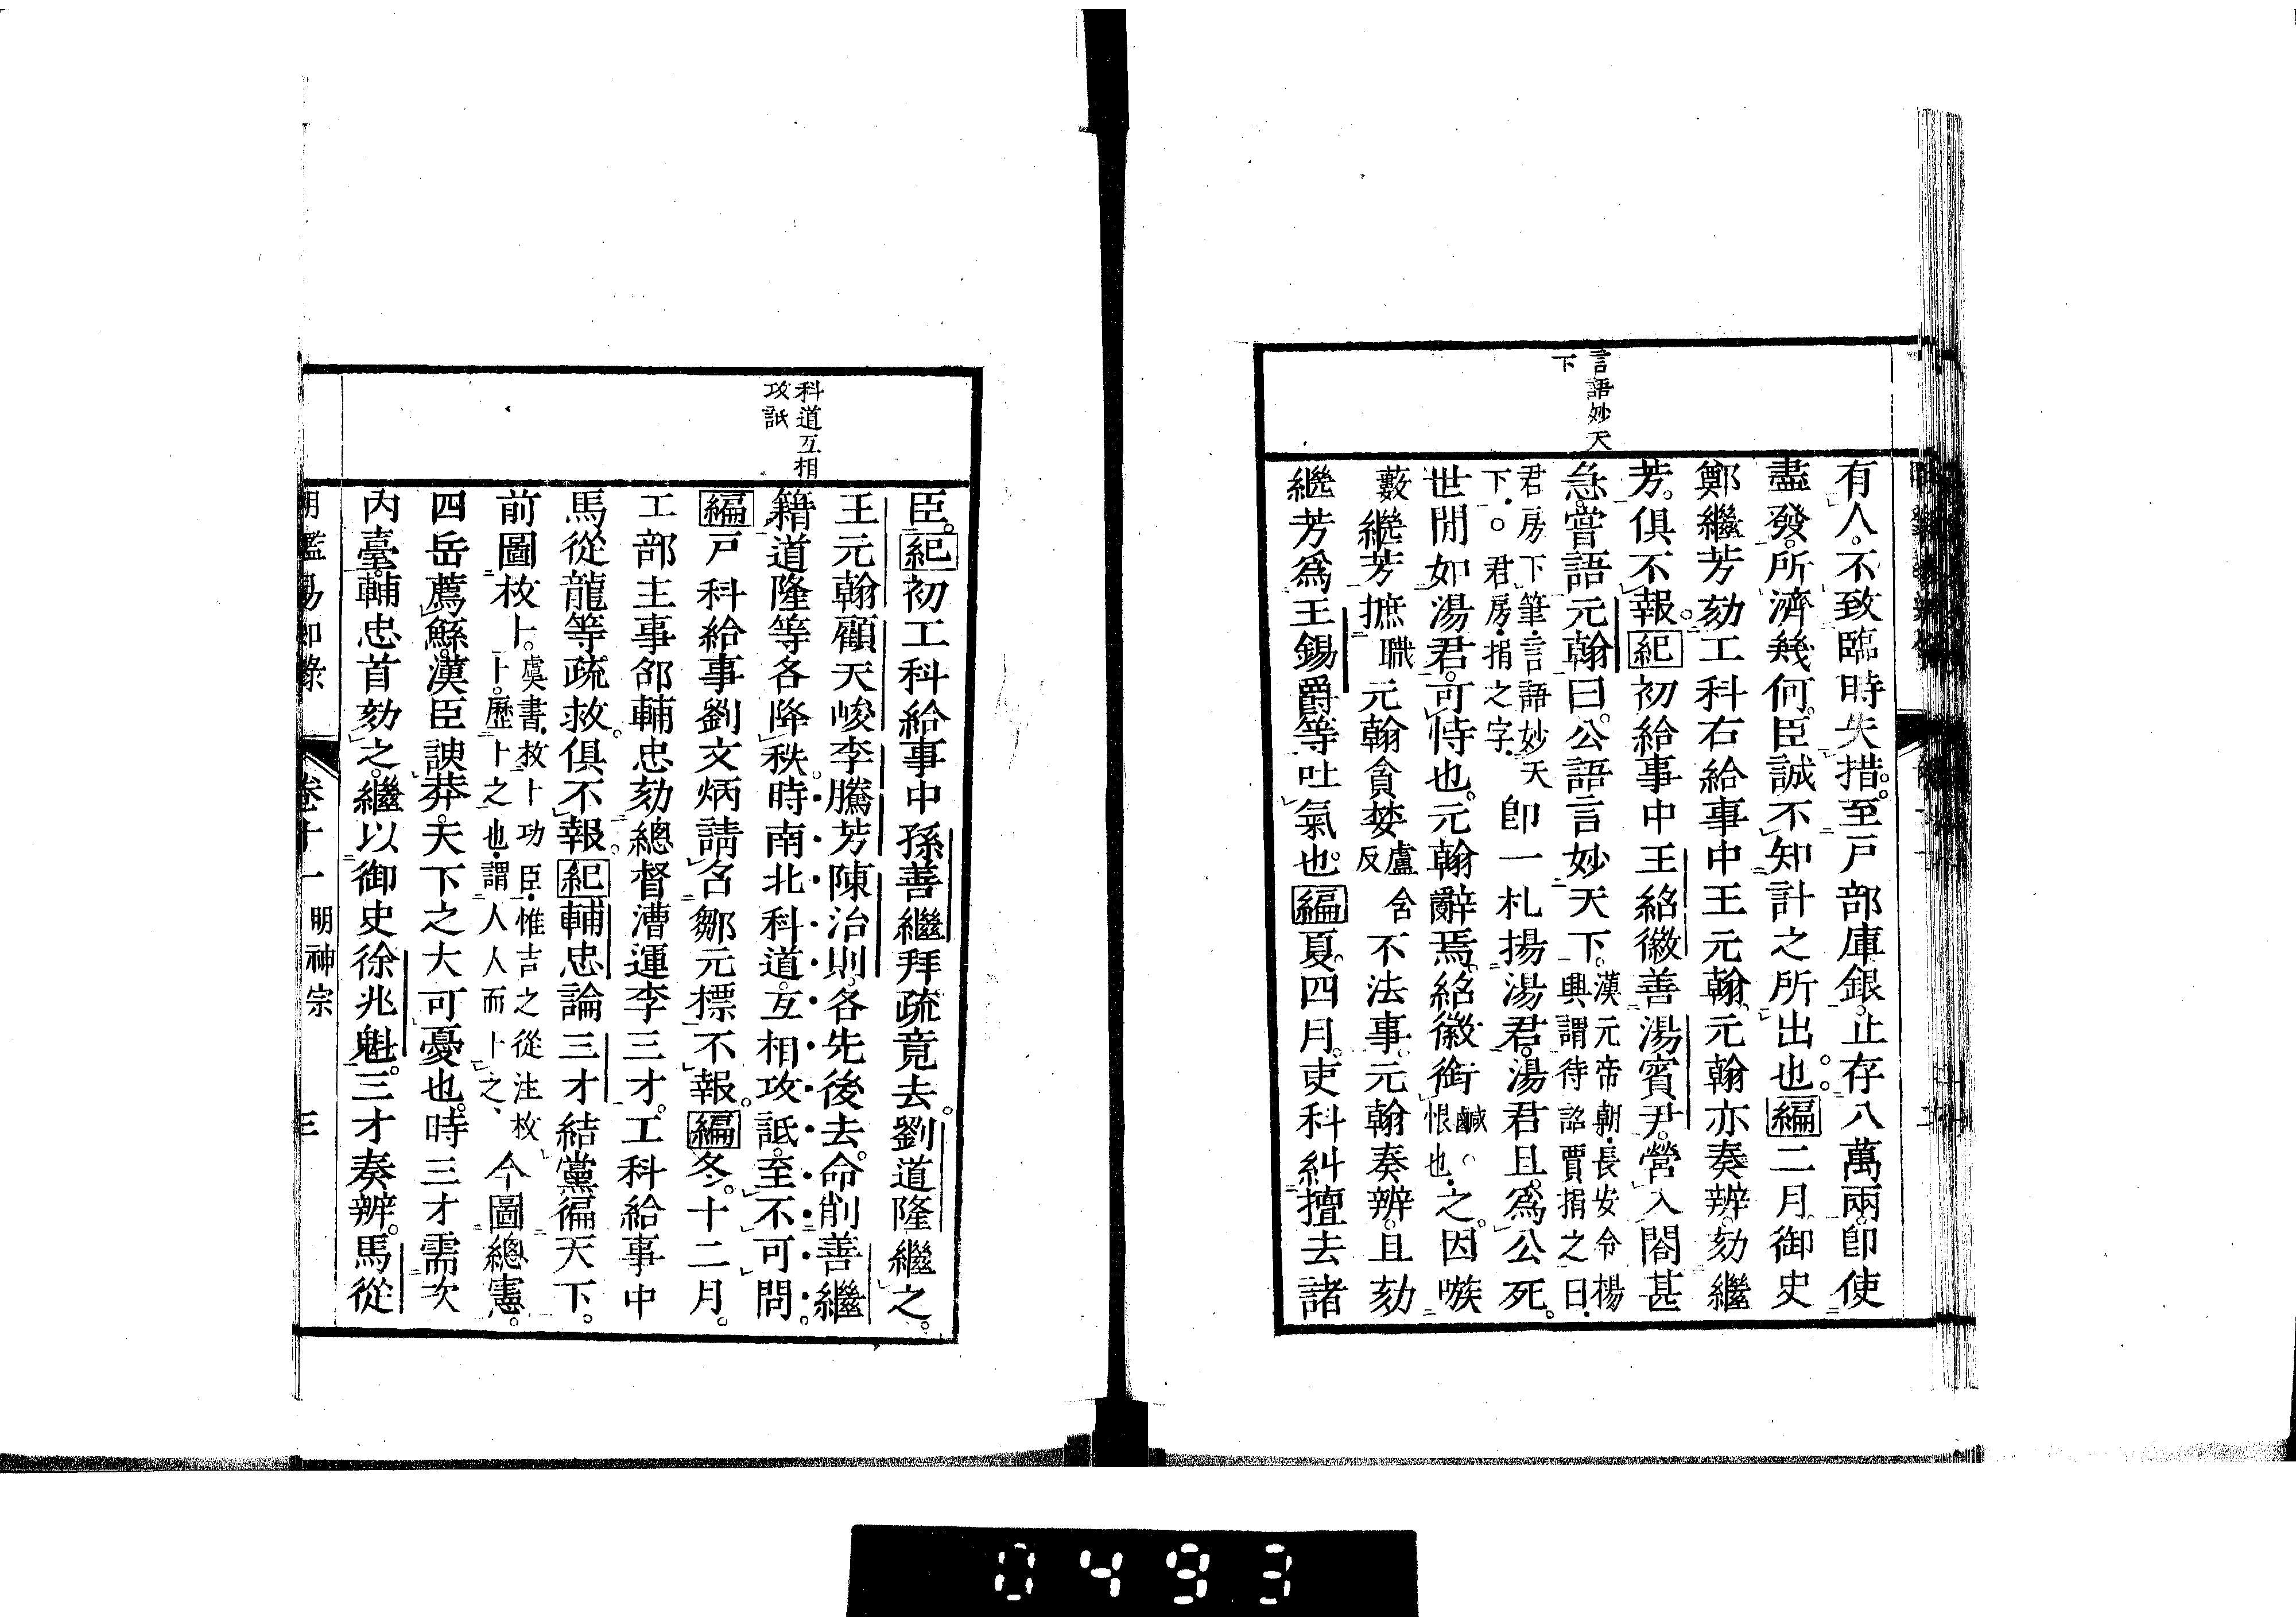 言語妙天
下
有人。不致臨時失措。至戸部庫銀。止存八萬兩。即使
盡發。所濟幾何。臣誠不知計之所出也。編二月。御史
鄭繼芳劾工科右給事中王元翰。元翰亦奏辨。劾繼
芳。俱不報。紀初給事中王紹徽善湯賓尹。營入閣甚
急。嘗語元翰曰。公語言妙天下。漢元帝朝。長安令楊
興謂待詔賈捐之曰。
君房下筆。言語妙天
下。○君房。捐之字。即一札揚湯君。湯君且爲公死。
世間如湯君。可恃也。元翰辭焉。紹徽銜鹹。
恨也。之。因嗾
藪繼芳摭職元翰貪婪盧含
反不法事。元翰奏辨。且劾
繼芳爲王錫爵等吐氣也。編夏。四月。吏科糾擅去諸
科道互相
攻詆
臣。紀初工科給事中孫善繼拜疏竟去。劉道隆繼之。
王元翰顧天峻李騰芳陳治則。各先後去。命削善繼
籍。道隆等各降秩。時南北科道。互相攻詆。至不可問。
編戸科給事劉文炳請召鄒元標。不報。編冬。十二月。
工部主事邵輔忠劾總督漕運李三才。工科給事中
馬從龍等疏救。俱不報。紀輔忠論三才結黨徧天下。
前圖枚卜。虞書。枚卜功臣。惟吉之從注。枚
卜。歷卜之也。謂人人而卜之、今圖總憲。
四岳薦鯀。漢臣諛莽。天下之大可憂也。時三才需次
內臺。輔忠首劾之。繼以御史徐兆魁。三才奏辨。馬從
明鑑易知錄 卷十一 明神宗 三
0493